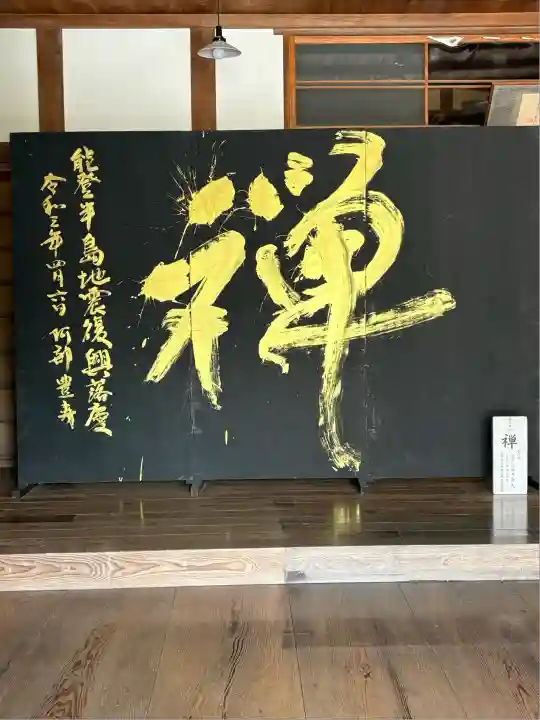 禅
能登半島地震復興落慶
令和三年四月六日 阿部豊寿
禅